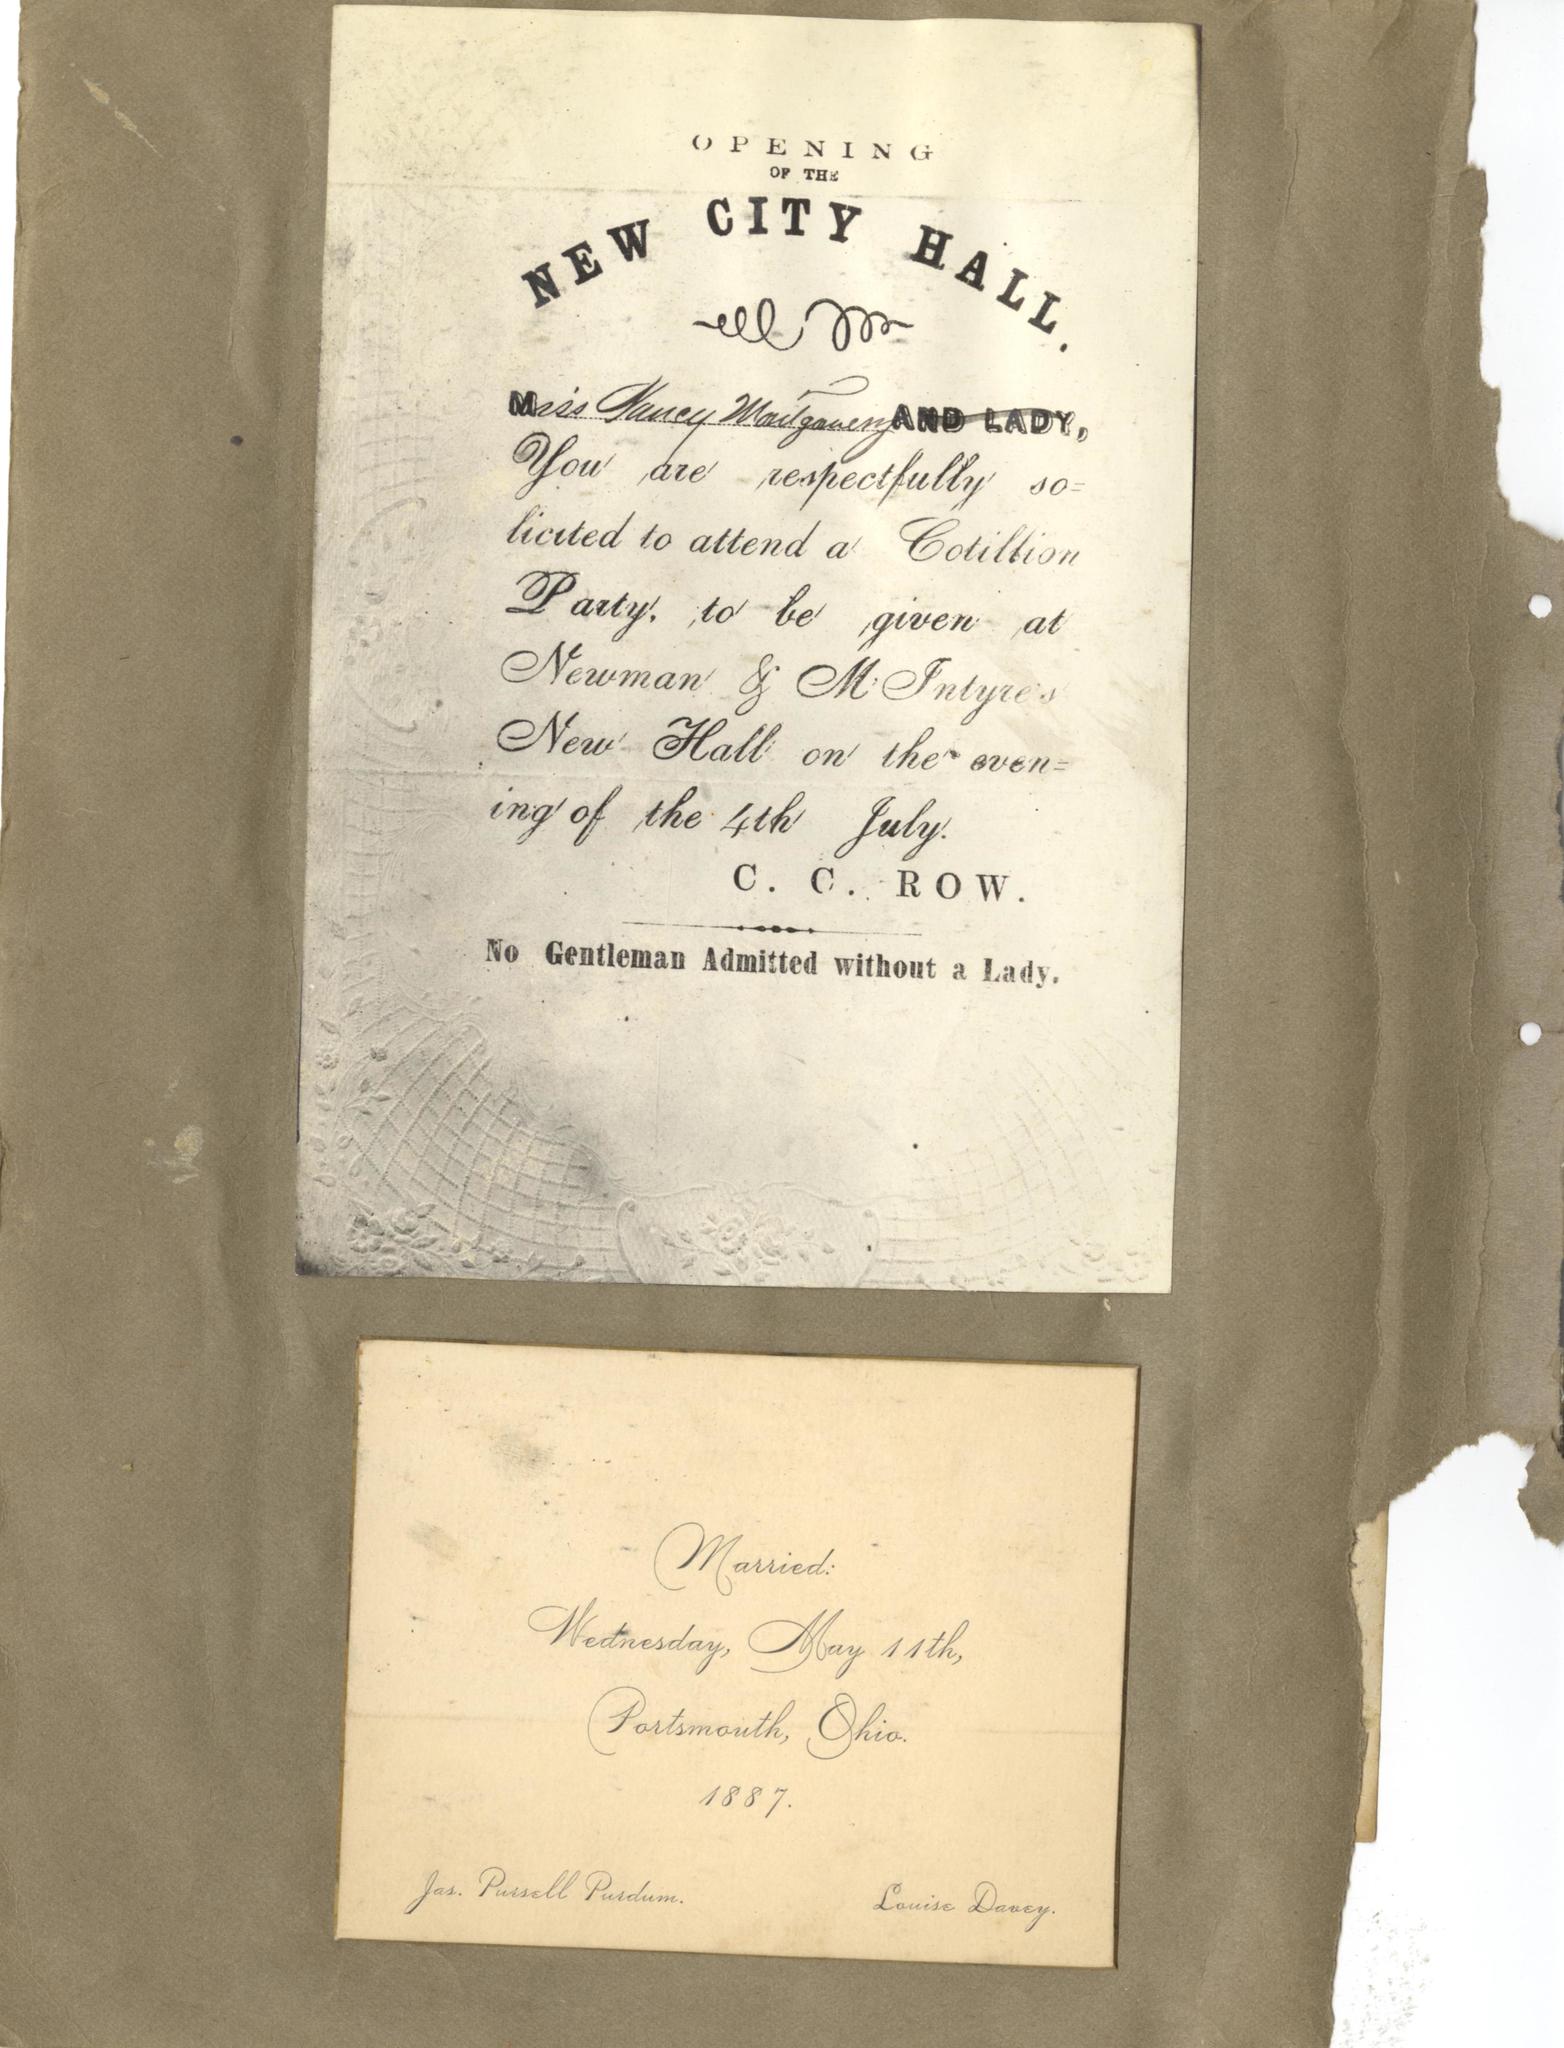 OPENING
OF THE
NEW CITY HALL.
Miss Nancy Montgomery AND LADY,
You are respectfully so=
licited to attend a Cotillion
Party, to be given at
Newman & Mc Intyre's
New Hall on the even=
ing of the 4th July.
C. C. ROW.
No Gentleman Admitted without a Lady.
Married:
Wednesday, May 11th,
Portsmouth, Ohio.
1887.
Jas. Pursell Purdum.
Louise Davey.